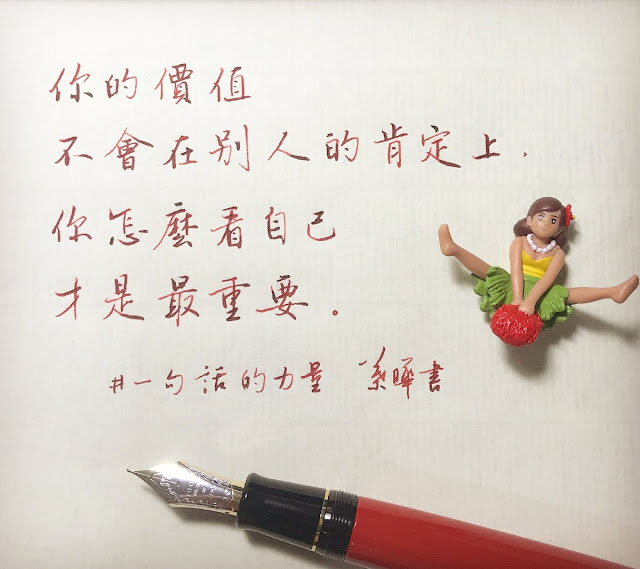 你的價值
不會在別人的肯定上.
你怎麼看自己
才是最重要.
#一句話的力量 葉曄書